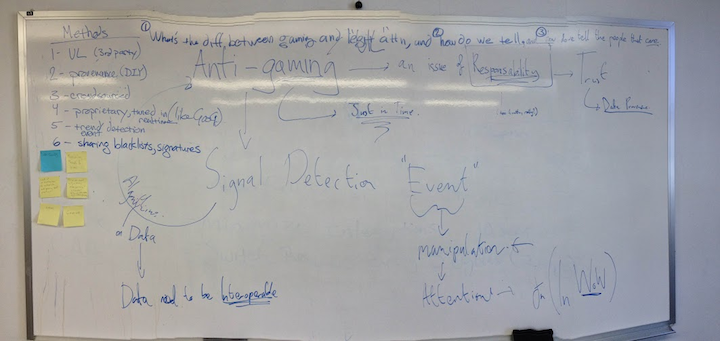 ① What's the diff. between gaming and "legit" att'n, and ② how do we tell, and ③ how tell the people that care
Methods
1 - UL (3rd party)
2 - provenance (DIY)
3 - crowdsourced
4 - proprietary, tuned in (like Goog)
5 - trend detection
event
6 - sharing blacklists, signatures
Anti-gaming → an issue of Responsibility → Trust
Just in Time
Data
Signal Detection "Event"
Data
manipulation of
Data need to be Interoperable
Attention → On (In WoW)